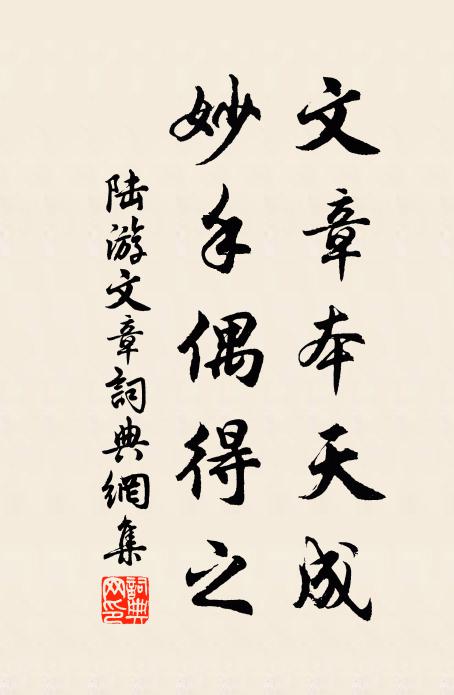 文章本天成
妙手偶得之
陆游文章詞典網集
詞典网印